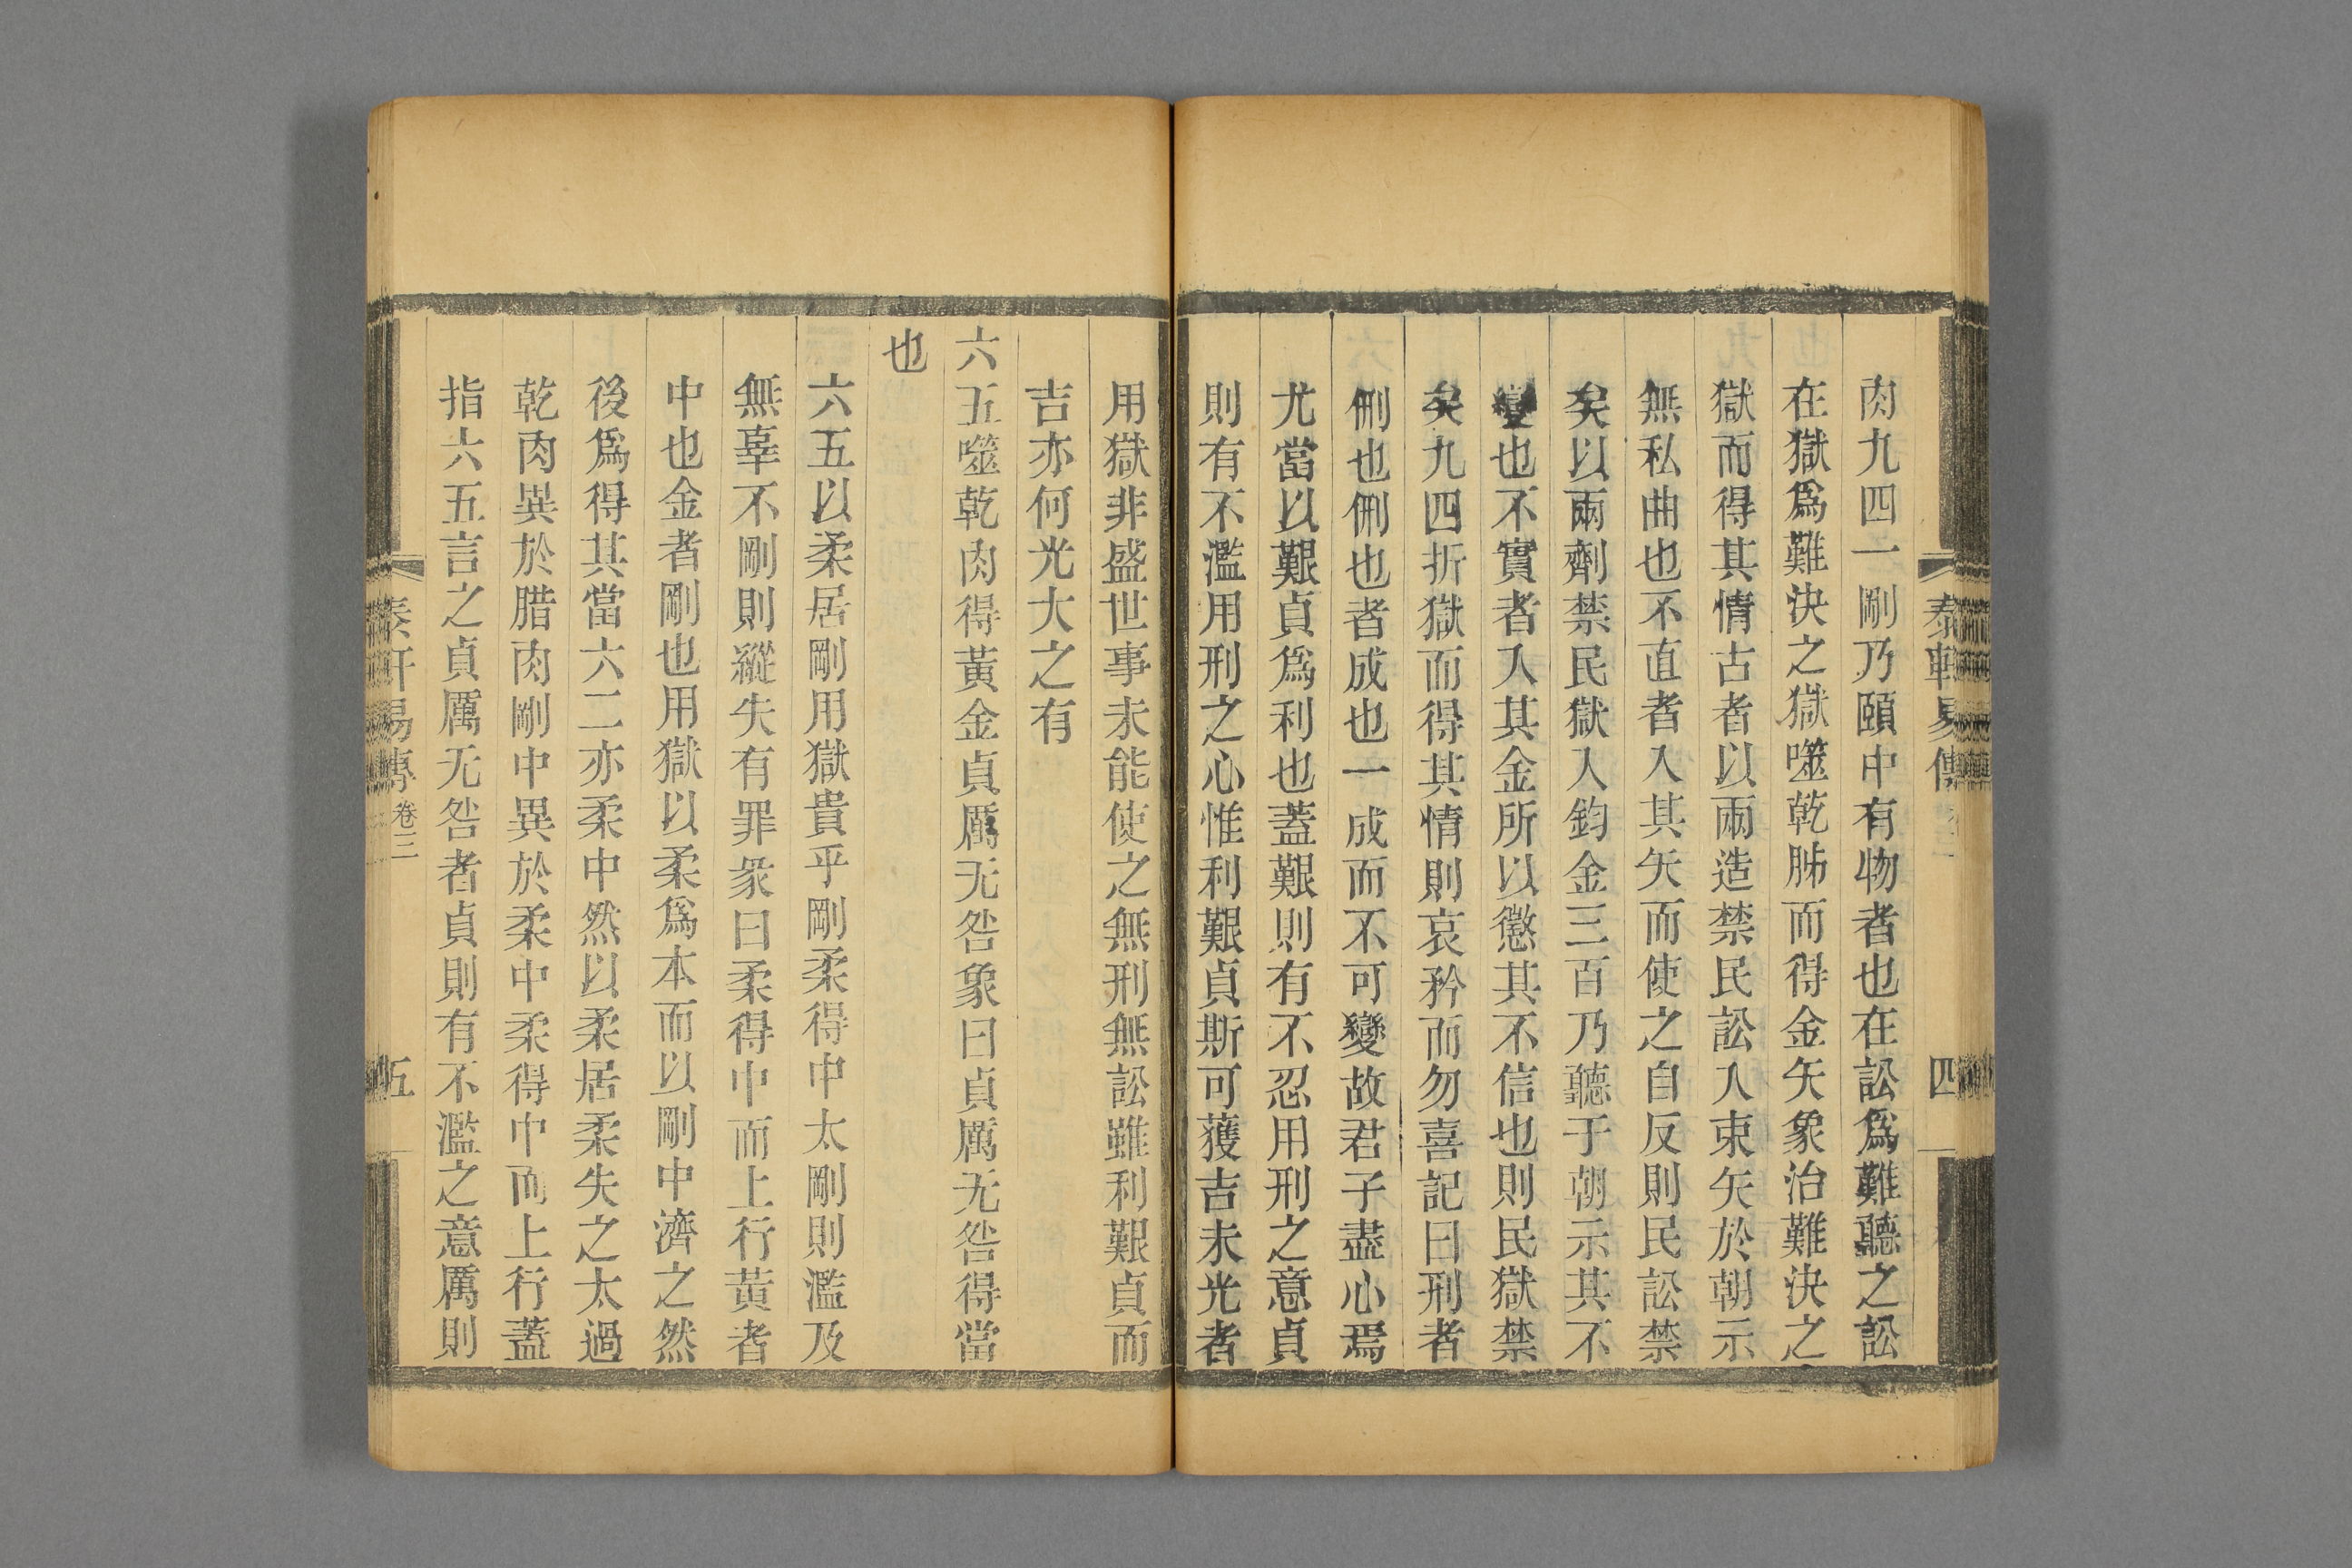 泰軒易傳
四
肉九四一剛乃頤中有物者也在訟爲難聽之訟
在獄爲難決之獄噬乾胏而得金矢象治難決之
獄而得其情古者以兩造禁民訟入束矢於朝示
無私曲也不直者入其矢而使之自反則民訟禁
矣以兩劑禁民獄入鈞金三百乃聽于朝示其不
變也不實者入其金所以懲其不信也則民獄禁
矣九四折獄而得其情則哀矜而勿喜記曰刑者
侀也侀也者成也一成而不可變故君子盡心焉
尤當以艱貞爲利也蓋艱則有不忍用刑之意貞
則有不濫用刑之心惟利艱貞斯可獲吉未光者
用獄非盛世事未能使之無刑無訟雖利艱貞而
吉亦何光大之有
六五噬乾肉得黃金貞厲无咎象曰貞厲无咎得當
也
六五以柔居剛用獄貴乎剛柔得中太剛則濫及
無辜不剛則縱失有罪彖曰柔得中而上行黃者
中也金者剛也用獄以柔爲本而以剛中濟之然
後爲得其當六二亦柔中然以柔居柔失之太過
乾肉異於腊肉剛中異於柔中柔得中而上行蓋
指六五言之貞厲无咎者貞則有不濫之意厲則
泰軒易傳 卷三
五